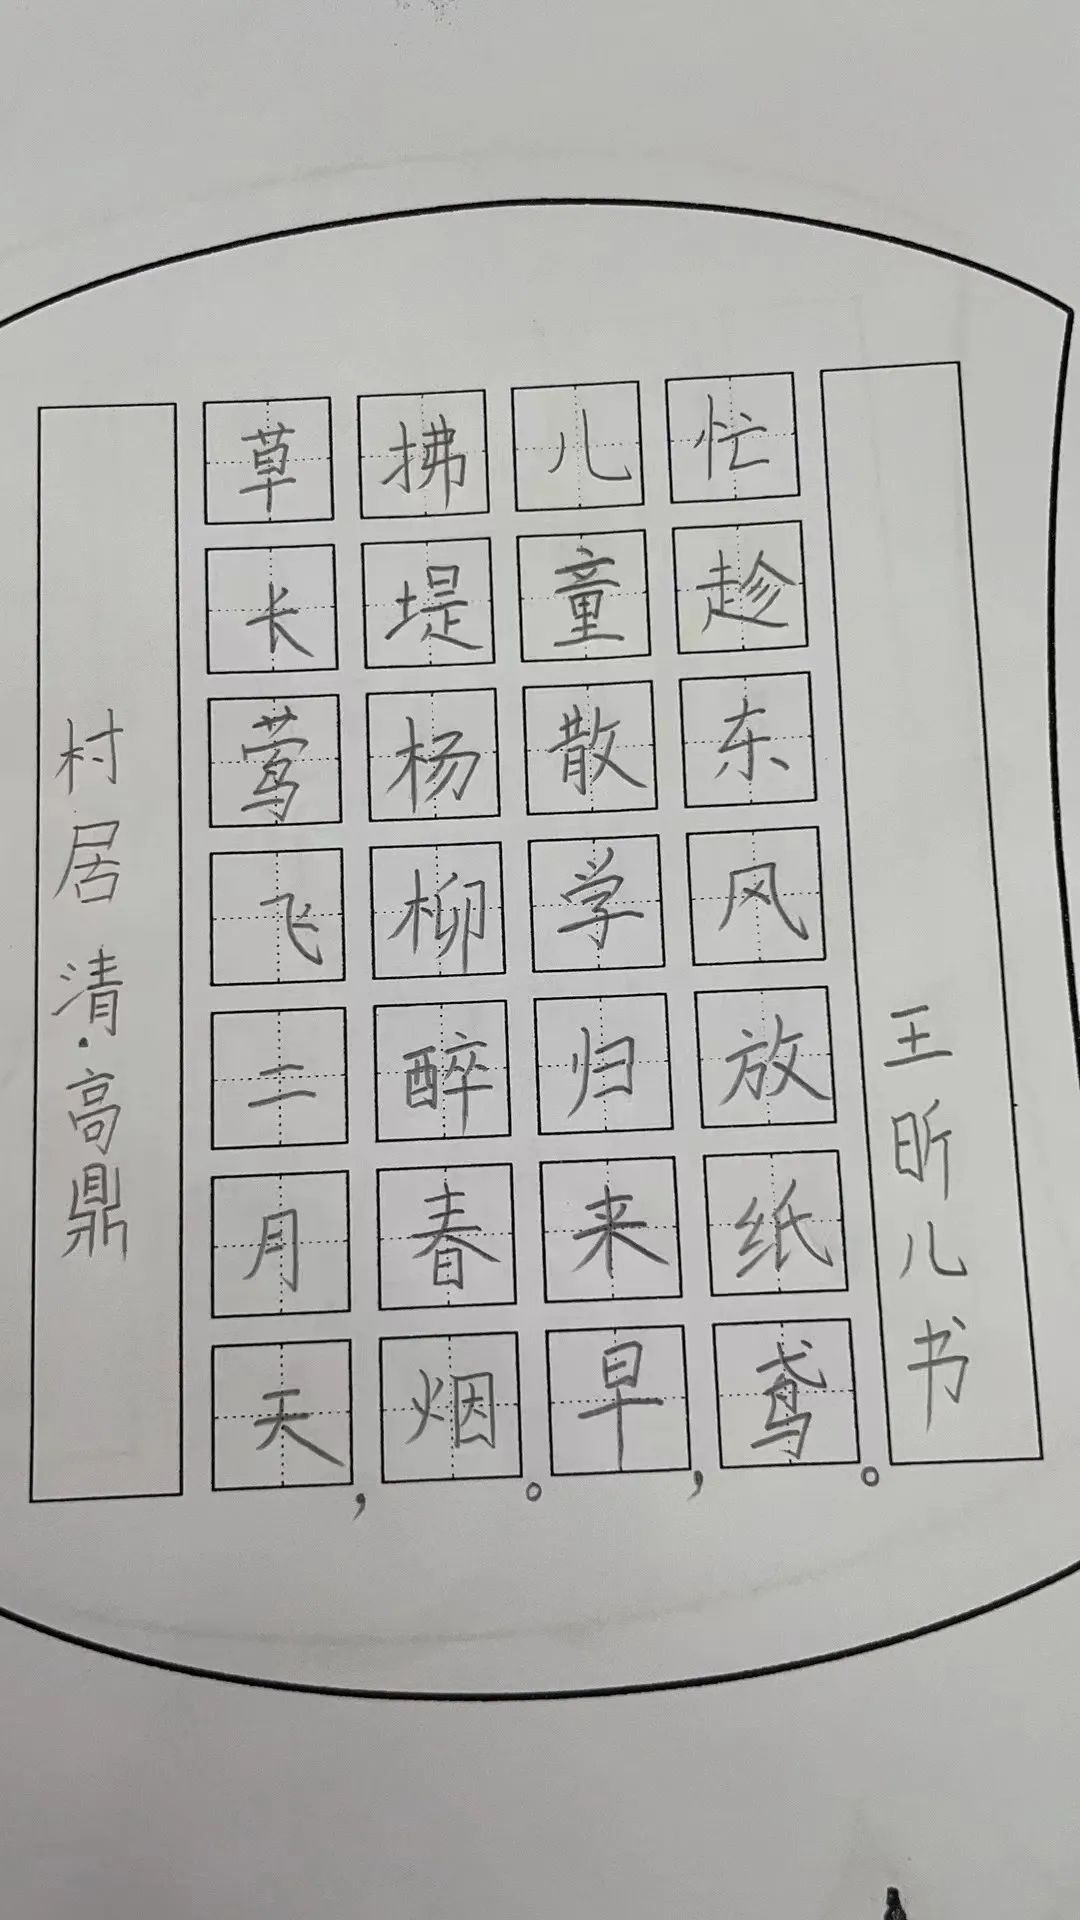 村居 清·高鼎
草长莺飞二月天，
拂堤杨柳醉春烟。
儿童散学归来早，
忙趁东风放纸鸢。
王昕儿书